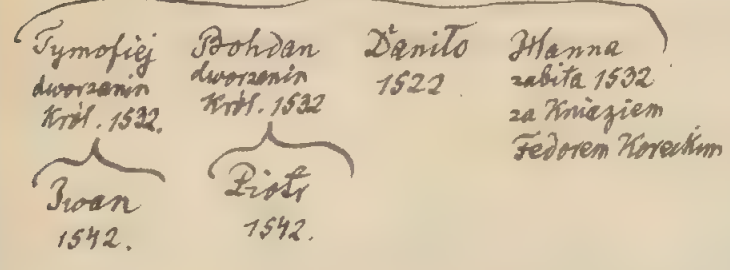 Tymofiej
dworzanin
Król. 1532.
Bohdan
dworzanin
Król. 1532
Daniło
1522
Hanna
zabita 1532
za Kniaziem
Fedorem Koreckim
Iwan
1542.
Piotr
1542.